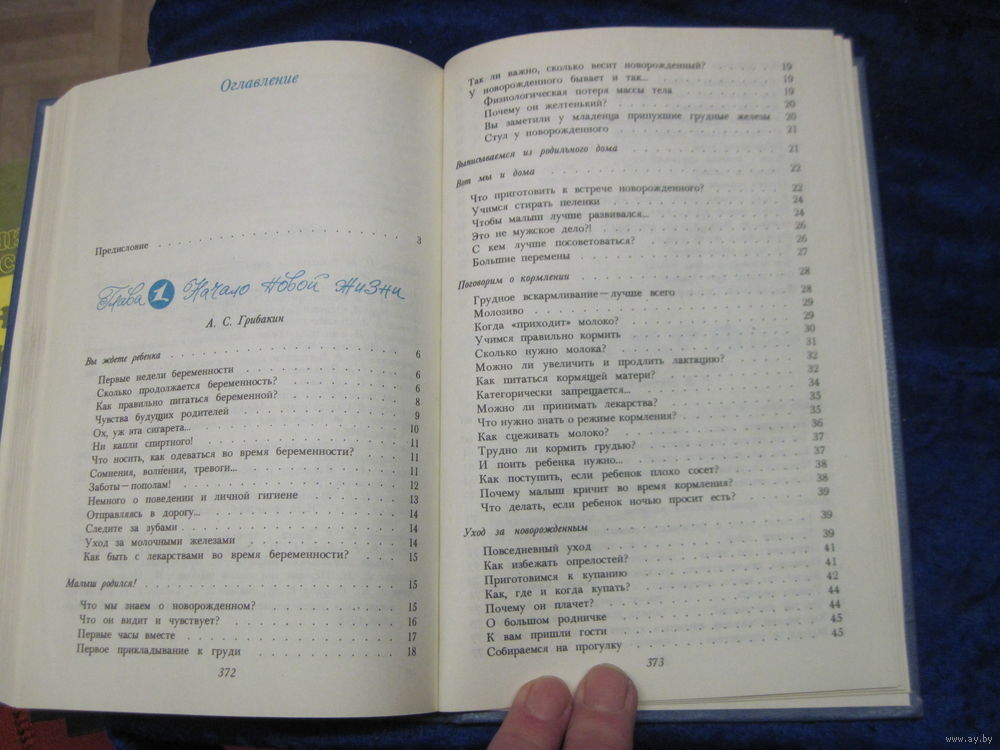 Оглавление
Предисловие . . . 3
Глава 1 Начало новой жизни
А. С. Грибакин
Вы ждете ребенка . . . 6
Первые недели беременности . . . 6
Сколько продолжается беременность? . . . 6
Как правильно питаться беременной? . . . 8
Чувства будущих родителей . . . 9
Ох, уж эта сигарета... . . . 10
Ни капли спиртного! . . . 11
Что носить, как одеваться во время беременности? . . . 11
Сомнения, волнения, тревоги... . . . 11
Заботы — пополам! . . . 12
Немного о поведении и личной гигиене . . . 13
Отправляясь в дорогу... . . . 14
Следите за зубами . . . 14
Уход за молочными железами . . . 14
Как быть с лекарствами во время беременности? . . . 15
Малыш родился! . . . 15
Что мы знаем о новорожденном? . . . 15
Что он видит и чувствует? . . . 16
Первые часы вместе . . . 17
Первое прикладывание к груди . . . 18
372
Так ли важно, сколько весит новорожденный? . . . 19
У новорожденного бывает и так... . . . 19
Физиологическая потеря массы тела . . . 19
Почему он желтенький? . . . 20
Вы заметили у младенца припухшие грудные железы 20
Стул у новорожденного . . . 21
Выписываемся из родильного дома . . . 21
Вот мы и дома . . . 22
Что приготовить к встрече новорожденного? . . . 22
Учимся стирать пеленки . . . 24
Чтобы малыш лучше развивался... . . . 24
Это не мужское дело?! . . . 26
С кем лучше посоветоваться? . . . 26
Большие перемены . . . 27
Поговорим о кормлении . . . 28
Грудное вскармливание — лучше всего . . . 28
Молозиво . . . 29
Когда «приходит» молоко? . . . 29
Учимся правильно кормить . . . 30
Сколько нужно молока? . . . 31
Можно ли увеличить и продлить лактацию? . . . 32
Как питаться кормящей матери? . . . 32
Категорически запрещается... . . . 34
Можно ли принимать лекарства? . . . 35
Что нужно знать о режиме кормления? . . . 35
Как сцеживать молоко? . . . 36
Трудно ли кормить грудью? . . . 37
И поить ребенка нужно... . . . 37
Как поступить, если ребенок плохо сосет? . . . 38
Почему малыш кричит во время кормления? . . . 38
Что делать, если ребенок ночью просит есть? . . . 39
Уход за новорожденным . . . 39
Повседневный уход . . . 39
Как избежать опрелостей? . . . 41
Приготовимся к купанию . . . 41
Как, где и когда купать? . . . 42
Почему он плачет? . . . 44
О большом родничке . . . 44
К вам пришли гости . . . 45
Собираемся на прогулку . . . 45
373
www.ay.by